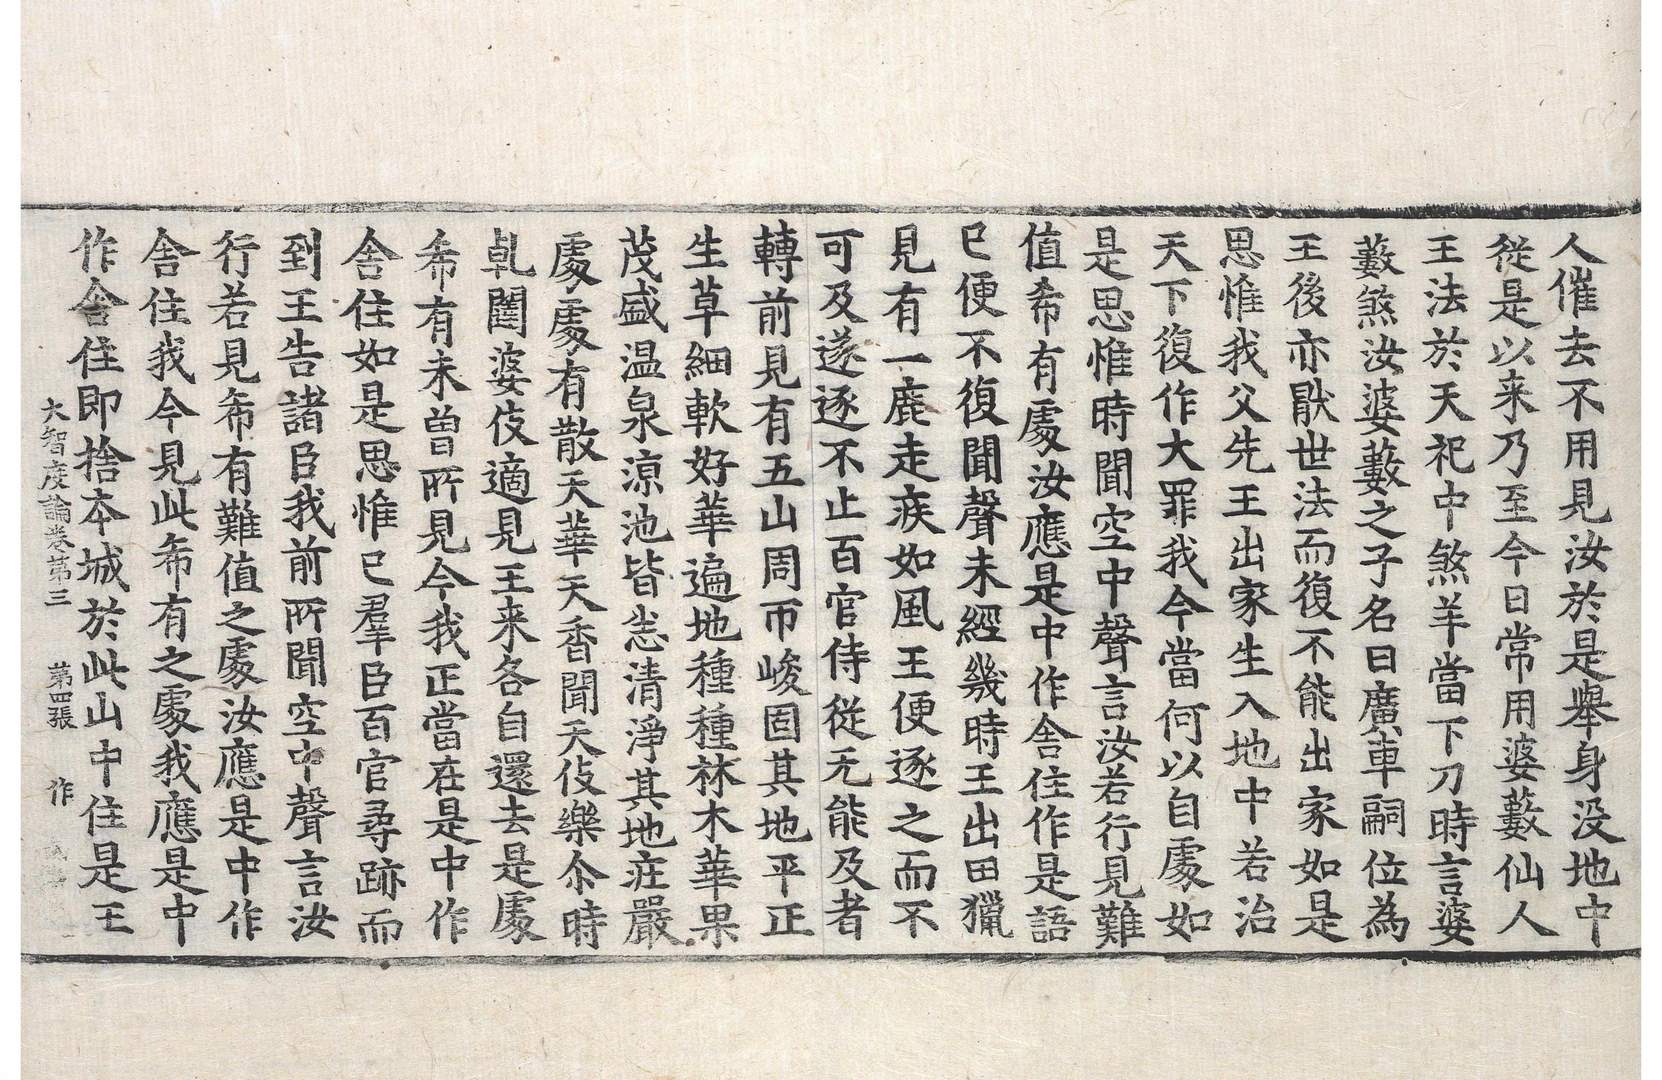 人催去不用見汝於是舉身没地中
從是以来乃至今日常用婆藪仙人
王法於天祀中煞羊當下刀時言婆
藪煞汝婆藪之子名曰廣車嗣位為
王後亦猒世法而復不能出家如是
思惟我父先王出家生入地中若治
天下復作大罪我今當何以自處如
是思惟時聞空中聲言汝若行見難
值希有處汝應是中作舍住作是語
已便不復聞聲未經幾時王出田獵
見有一鹿走疾如風王便逐之而不
可及遂逐不止百官侍從无能及者
轉前見有五山周帀峻固其地平正
生草細軟好華遍地種種林木華果
茂盛温泉涼池皆悉清淨其地莊嚴
處處有散天華天香聞天伎樂尒時
乹闥婆伎適見王来各自還去是處
希有未曾所見今我正當在是中作
舍住如是思惟已羣臣百官尋跡而
到王告諸臣我前所聞空中聲言汝
行若見希有難值之處汝應是中作
舍住我今見此希有之處我應是中
作舍住即捨本城於此山中住是王
大智度論卷第三 第四張 作